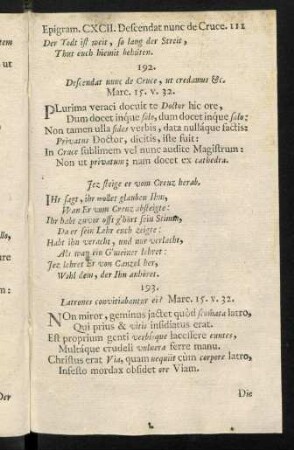 Epigram. CXCII. Descendat nunc de Cruce. 111
Der Todt ist weit, so lang der Streit,
Thut euch hiemit behüten.
192.
Descendat nunc de Cruce, ut credamus &c.
Marc. 15. v. 32.
PLurima veraci docuit te Doctor hic ore,
Dum docet inque solo, dum docet inque salo;
Non tamen ulla fides verbis, data nulláque factis:
Privatus Doctor, dicitis, iste fuit:
In Cruce sublimem vel nunc audite Magistrum:
Non ut privatum; nam docet ex cathedra.
Jez steige er vom Creuz herab.
IHr sagt, ihr wollet glauben Ihm,
Wan Er vom Creuz absteigte:
Ihr habt zuvor offt g'hört sein Stimm,
Da er sein Lehr euch zeigte:
Habt ihn veracht, und nur verlacht,
Als wan ein G'meiner lehret:
Jez lehret Er von Canzel her,
Wohl dem, der Ihn anhöret.
193.
Latrones convitiabantur ei! Marc. 15. v. 32.
NOn miror, geminus jactet quòd scommata latro,
Qui prius & vitis insidiatus erat.
Est proprium genti verbisque lacessere euntes,
Multáque crudeli vulnera ferre manu.
Christus erat Via, quam nequiit cùm corpore latro,
Infesto mordax obsidet ore Viam.
Die